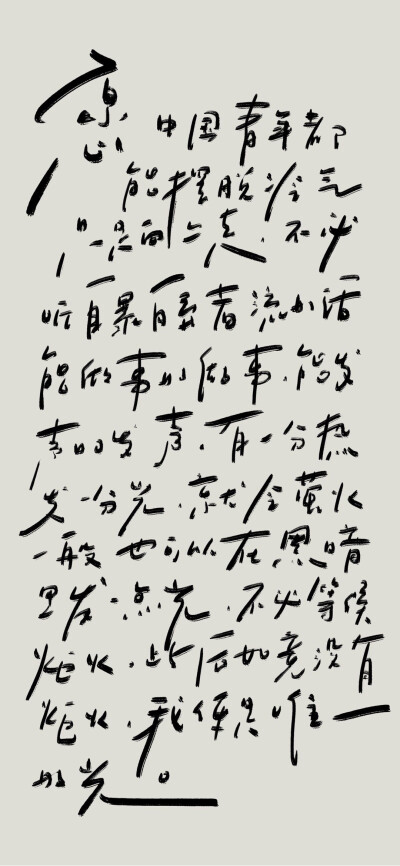 愿中国青年都
能摆脱冷气
只是向上走.不必
听自暴自弃者流的话
能做事的做事.能发
声的发声.有一分热
发一分光.就令萤火
一般也可以在黑暗
里发一点光.不必等候
炬火.此后如竟没有
炬火.我便是唯一
的光。